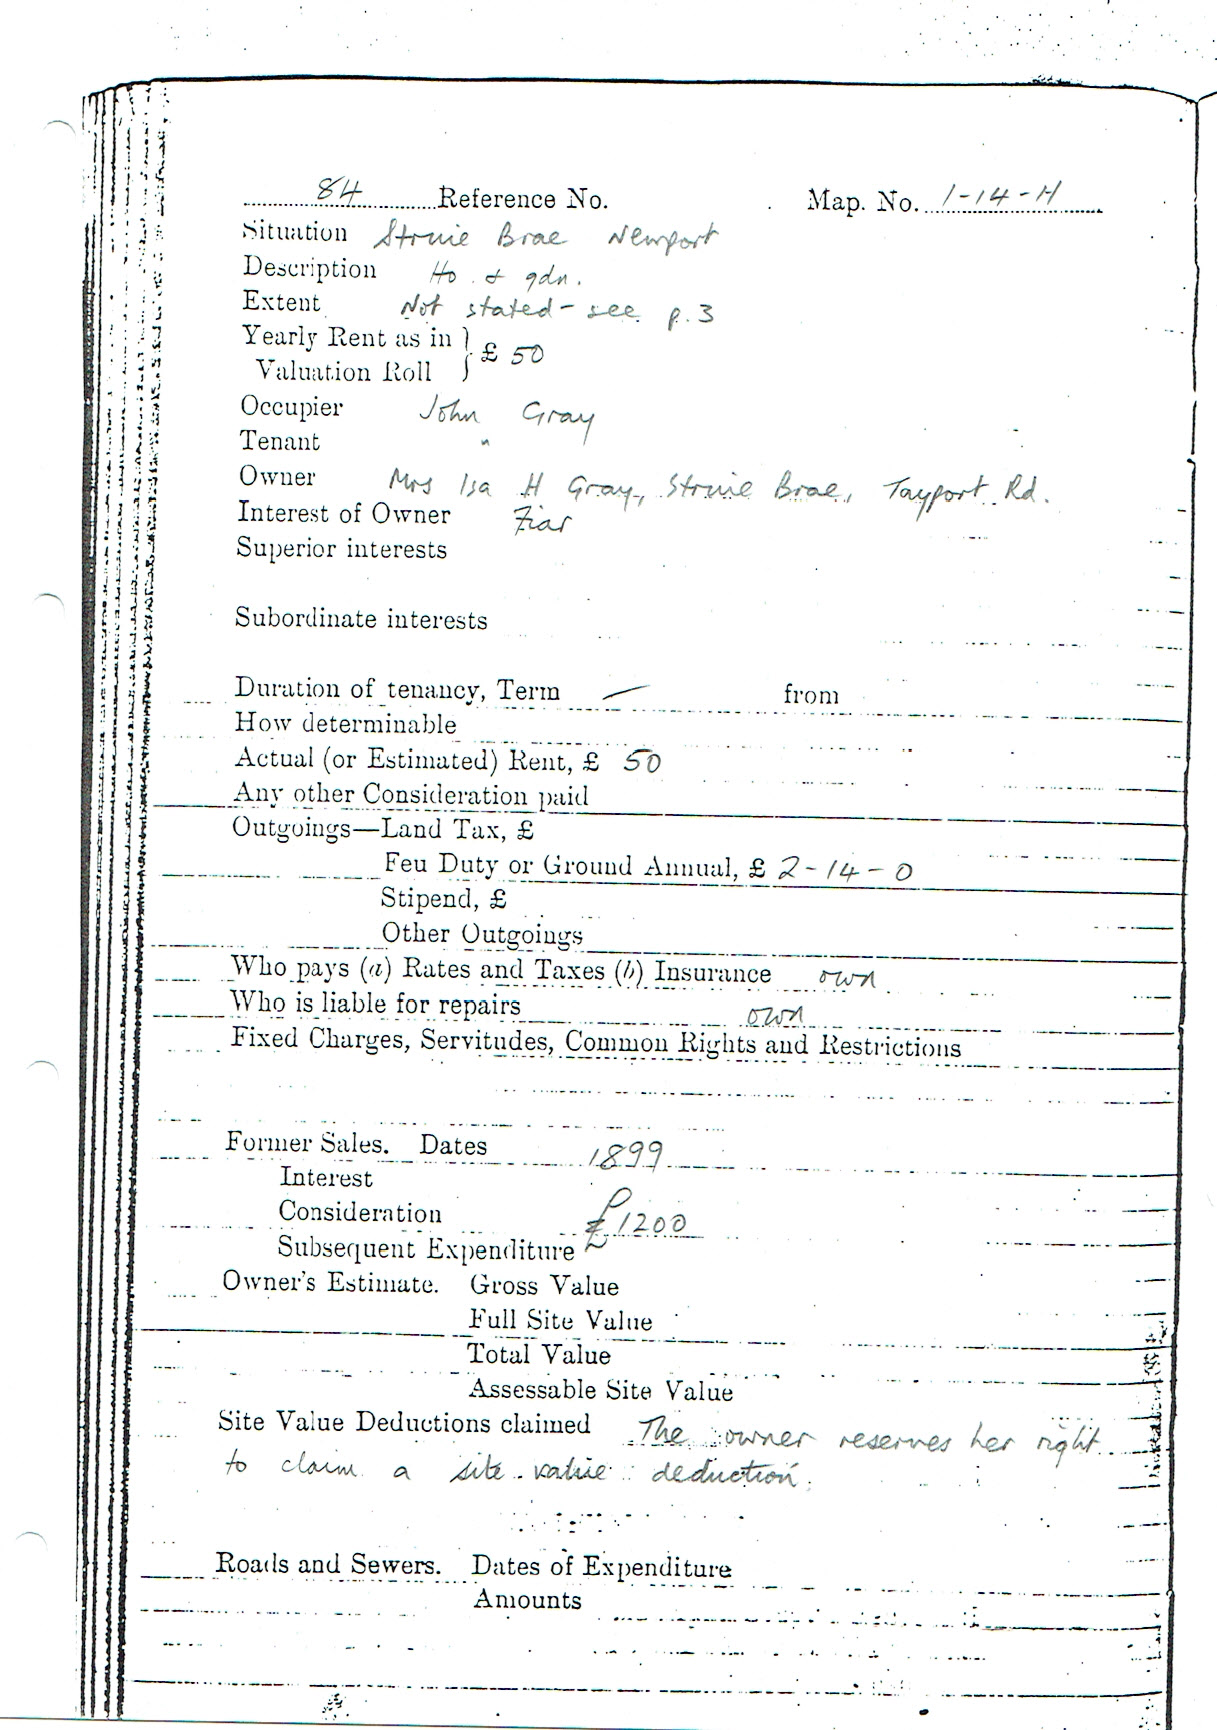 84 Reference No. Map. No. 1-14-H
Situation Struie Brae Newport
Description Ho. & gdn.
Extent Not stated - see p.3
Yearly Rent as in } £ 50
Valuation Roll
Occupier John Gray
Tenant "
Owner Mrs Isa H Gray, Struie Brae, Tayport Rd.
Interest of Owner Fiar
Superior interests
Subordinate interests
Duration of tenancy, Term — from
How determinable
Actual (or Estimated) Rent, £ 50
Any other Consideration paid
Outgoings—Land Tax, £
Feu Duty or Ground Annual, £ 2-14-0
Stipend, £
Other Outgoings
Who pays (a) Rates and Taxes (b) Insurance own
Who is liable for repairs own
Fixed Charges, Servitudes, Common Rights and Restrictions
Former Sales. Dates 1899
Interest
Consideration £1200
Subsequent Expenditure
Owner's Estimate. Gross Value
Full Site Value
Total Value
Assessable Site Value
Site Value Deductions claimed The owner reserves her right
to claim a site value deduction.
Roads and Sewers. Dates of Expenditure
Amounts